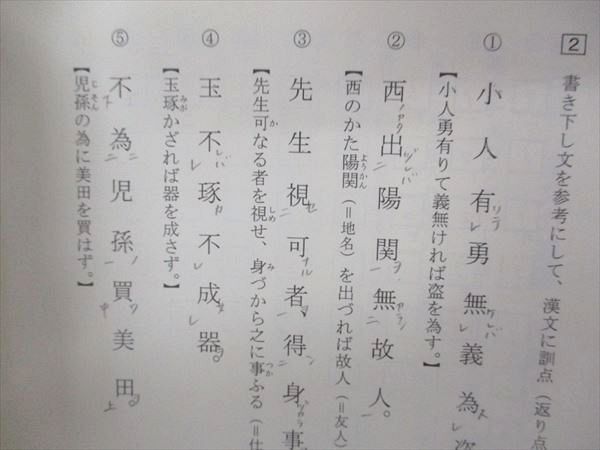 2 書き下し文を参考にして、漢文に訓点（返り点
① 小人有勇無義為盗
【小人勇有りて義無ければ盗を為す。】
② 西出陽関無故人。
【西のかた陽関（＝地名）を出づれば故人（＝友人）
③ 先生視可者、得身事
【先生可なる者を視せ、身づから之に事ふる（＝仕
④ 玉不琢不成器。
【玉琢かざれば器を成さず。】
⑤ 不為児孫買美田。
【児孫の為に美田を買はず。】